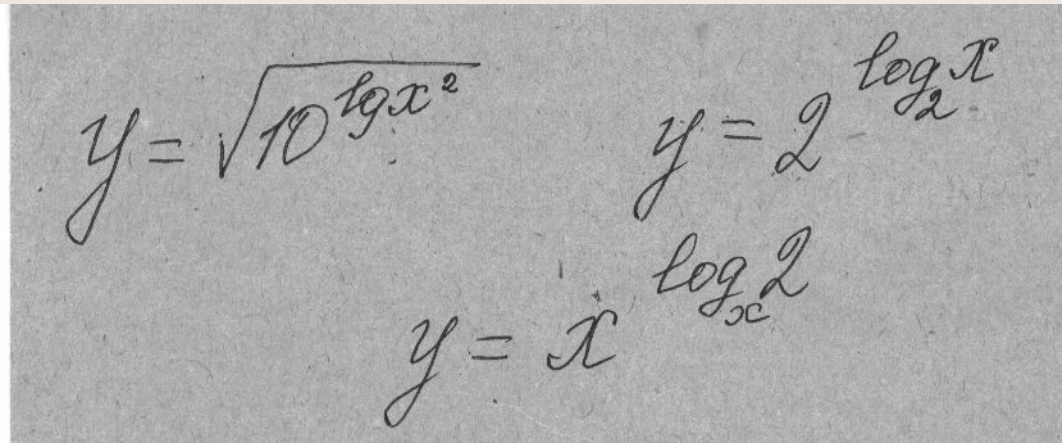 y = √10^lg x²
y = 2^log₂ x
y = x^logₓ 2